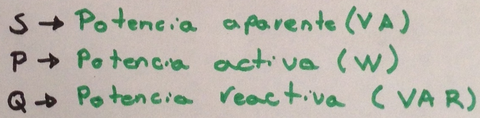 S → Potencia aparente (VA)
P → Potencia activa (W)
Q → Potencia reactiva (VAR)